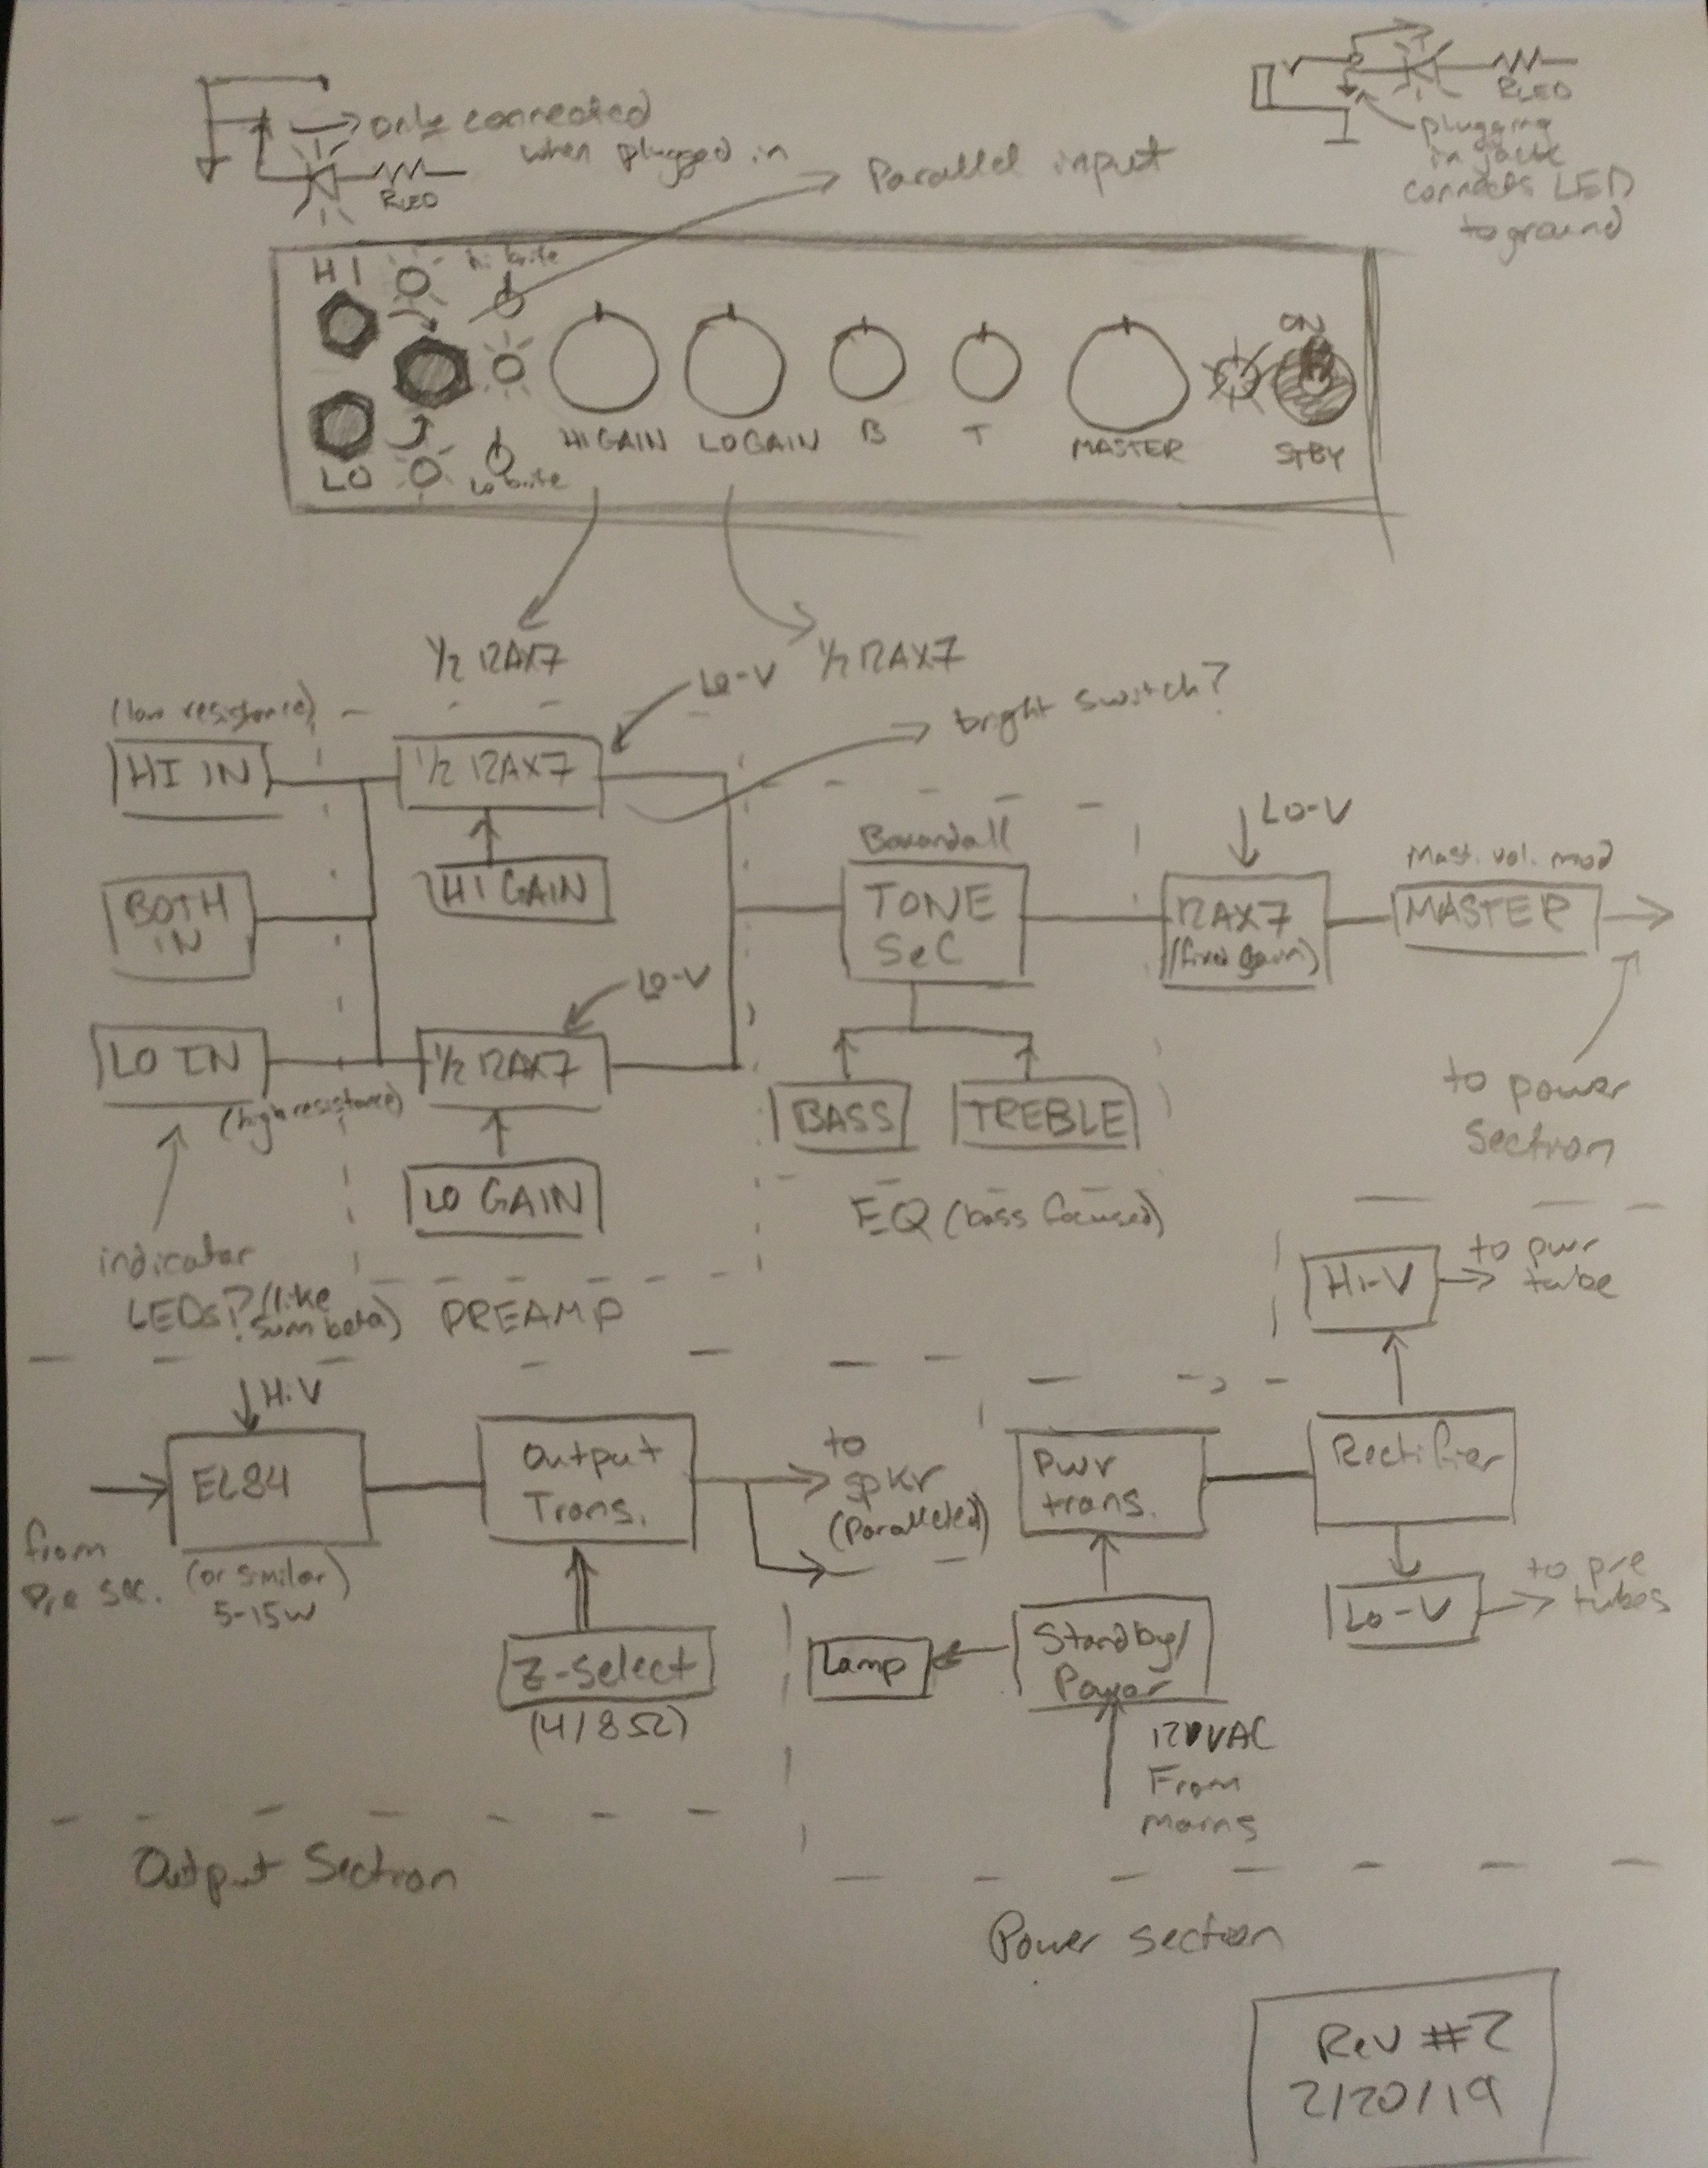 only connected
when plugged in
RLED
Parallel input
RLED
plugging
in jack
connects LED
to ground
HI
hi brite
ON
HI GAIN
LO GAIN
B
T
MASTER
STBY
LO
Lo brite
1/2 12AX7
1/2 12AX7
Lo-V
bright switch?
(low resistance)
HI IN
1/2 12AX7
HI GAIN
BOTH
IN
Lo-V
LO IN
(high resistance)
1/2 12AX7
LO GAIN
Baxandall
TONE
SEC
BASS
TREBLE
EQ (bass focused)
Lo-V
12AX7
(fixed gain)
Mast. vol. mod
MASTER
to power
section
indicator
LEDs? (like
sunn beta)
PREAMP
Hi-V
to pwr
tube
Hi-V
EL84
from
Pre sec.
(or similar)
5-15w
Output
Trans.
to
spkr
(Paralleled)
Z-Select
(4/8Ω)
Pwr
trans.
Rectifier
Lo-V
to pre
tubes
Lamp
Standby/
Power
120VAC
From
mains
Output Section
Power section
Rev #2
2/20/19